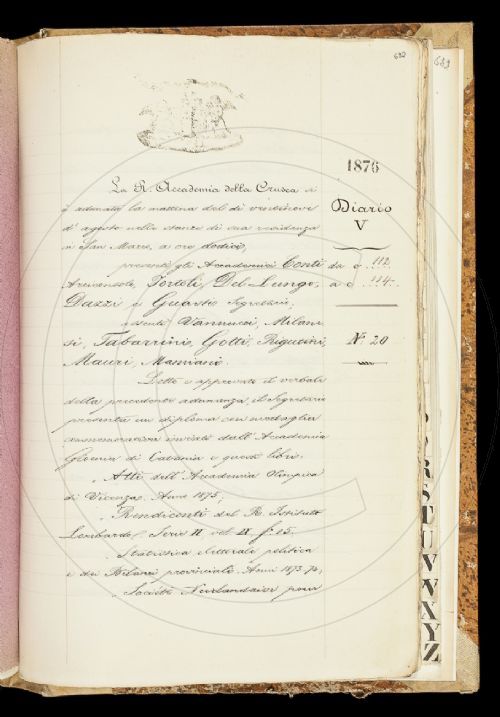 632
639
1876
Diario
V
da c. 112
a c. 114
N.° 20
La R. Accademia della Crusca si
è adunata la mattina del dì ventinove
d'agosto nelle stanze di sua residenza
in San Marco, a ore dodici,
presenti gli Accademici Conti
Arciconsolo, Tortoli, Del-Lungo,
Dazzi e Guasti Segretario,
assenti Vannucci, Milane-
si, Tabarrini, Gotti, Rigutini,
Mauri, Mamiani.
Letto e approvato il verbale
della precedente adunanza, il Segretario
presenta un diploma con medaglia
commemorativa inviati dall'Accademia
Gioenia di Catania e questi libri:
Atti dell'Accademia Olimpica
di Vicenza. Anno 1875;
Rendiconti del R. Istituto
Lombardo, Serie II, vol. IX f. 15.
Statistica elettorale politica
e dei Bilanci provinciali. Anni 1873-74;
Société Néerlandaise pour
R
S
T
U
V
W
X
Y
Z